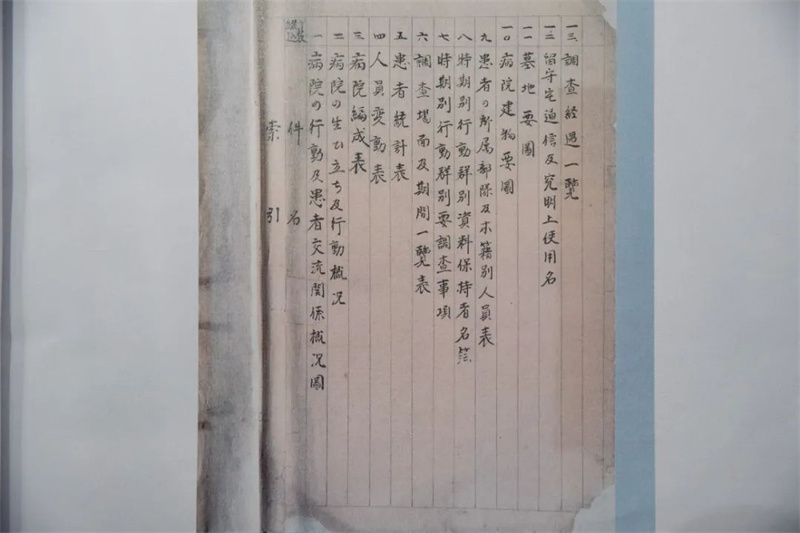 件名
索引
一 病院の行動及患者交流関係概況圖
二 病院の生ひ立ち及行動概況
三 病院編成表
四 人員変動表
五 患者統計表
六 調査場面及期間一覽表
七 時期別行動群別要調査事項
八 時期別行動群別資料保持者名簿
九 患者の所属部隊及本籍別人員表
一〇 病院建物要圖
一一 墓地要圖
一二 留守宅通信及究明上使用名
一三 調査経過一覽